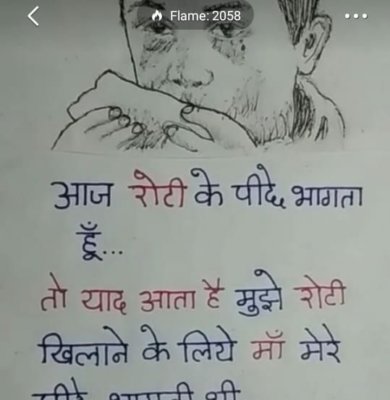 Flame: 2058
आज रोटी के पीछे भागता
हूँ...
तो याद आता है मुझे रोटी
खिलाने के लिये माँ मेरे